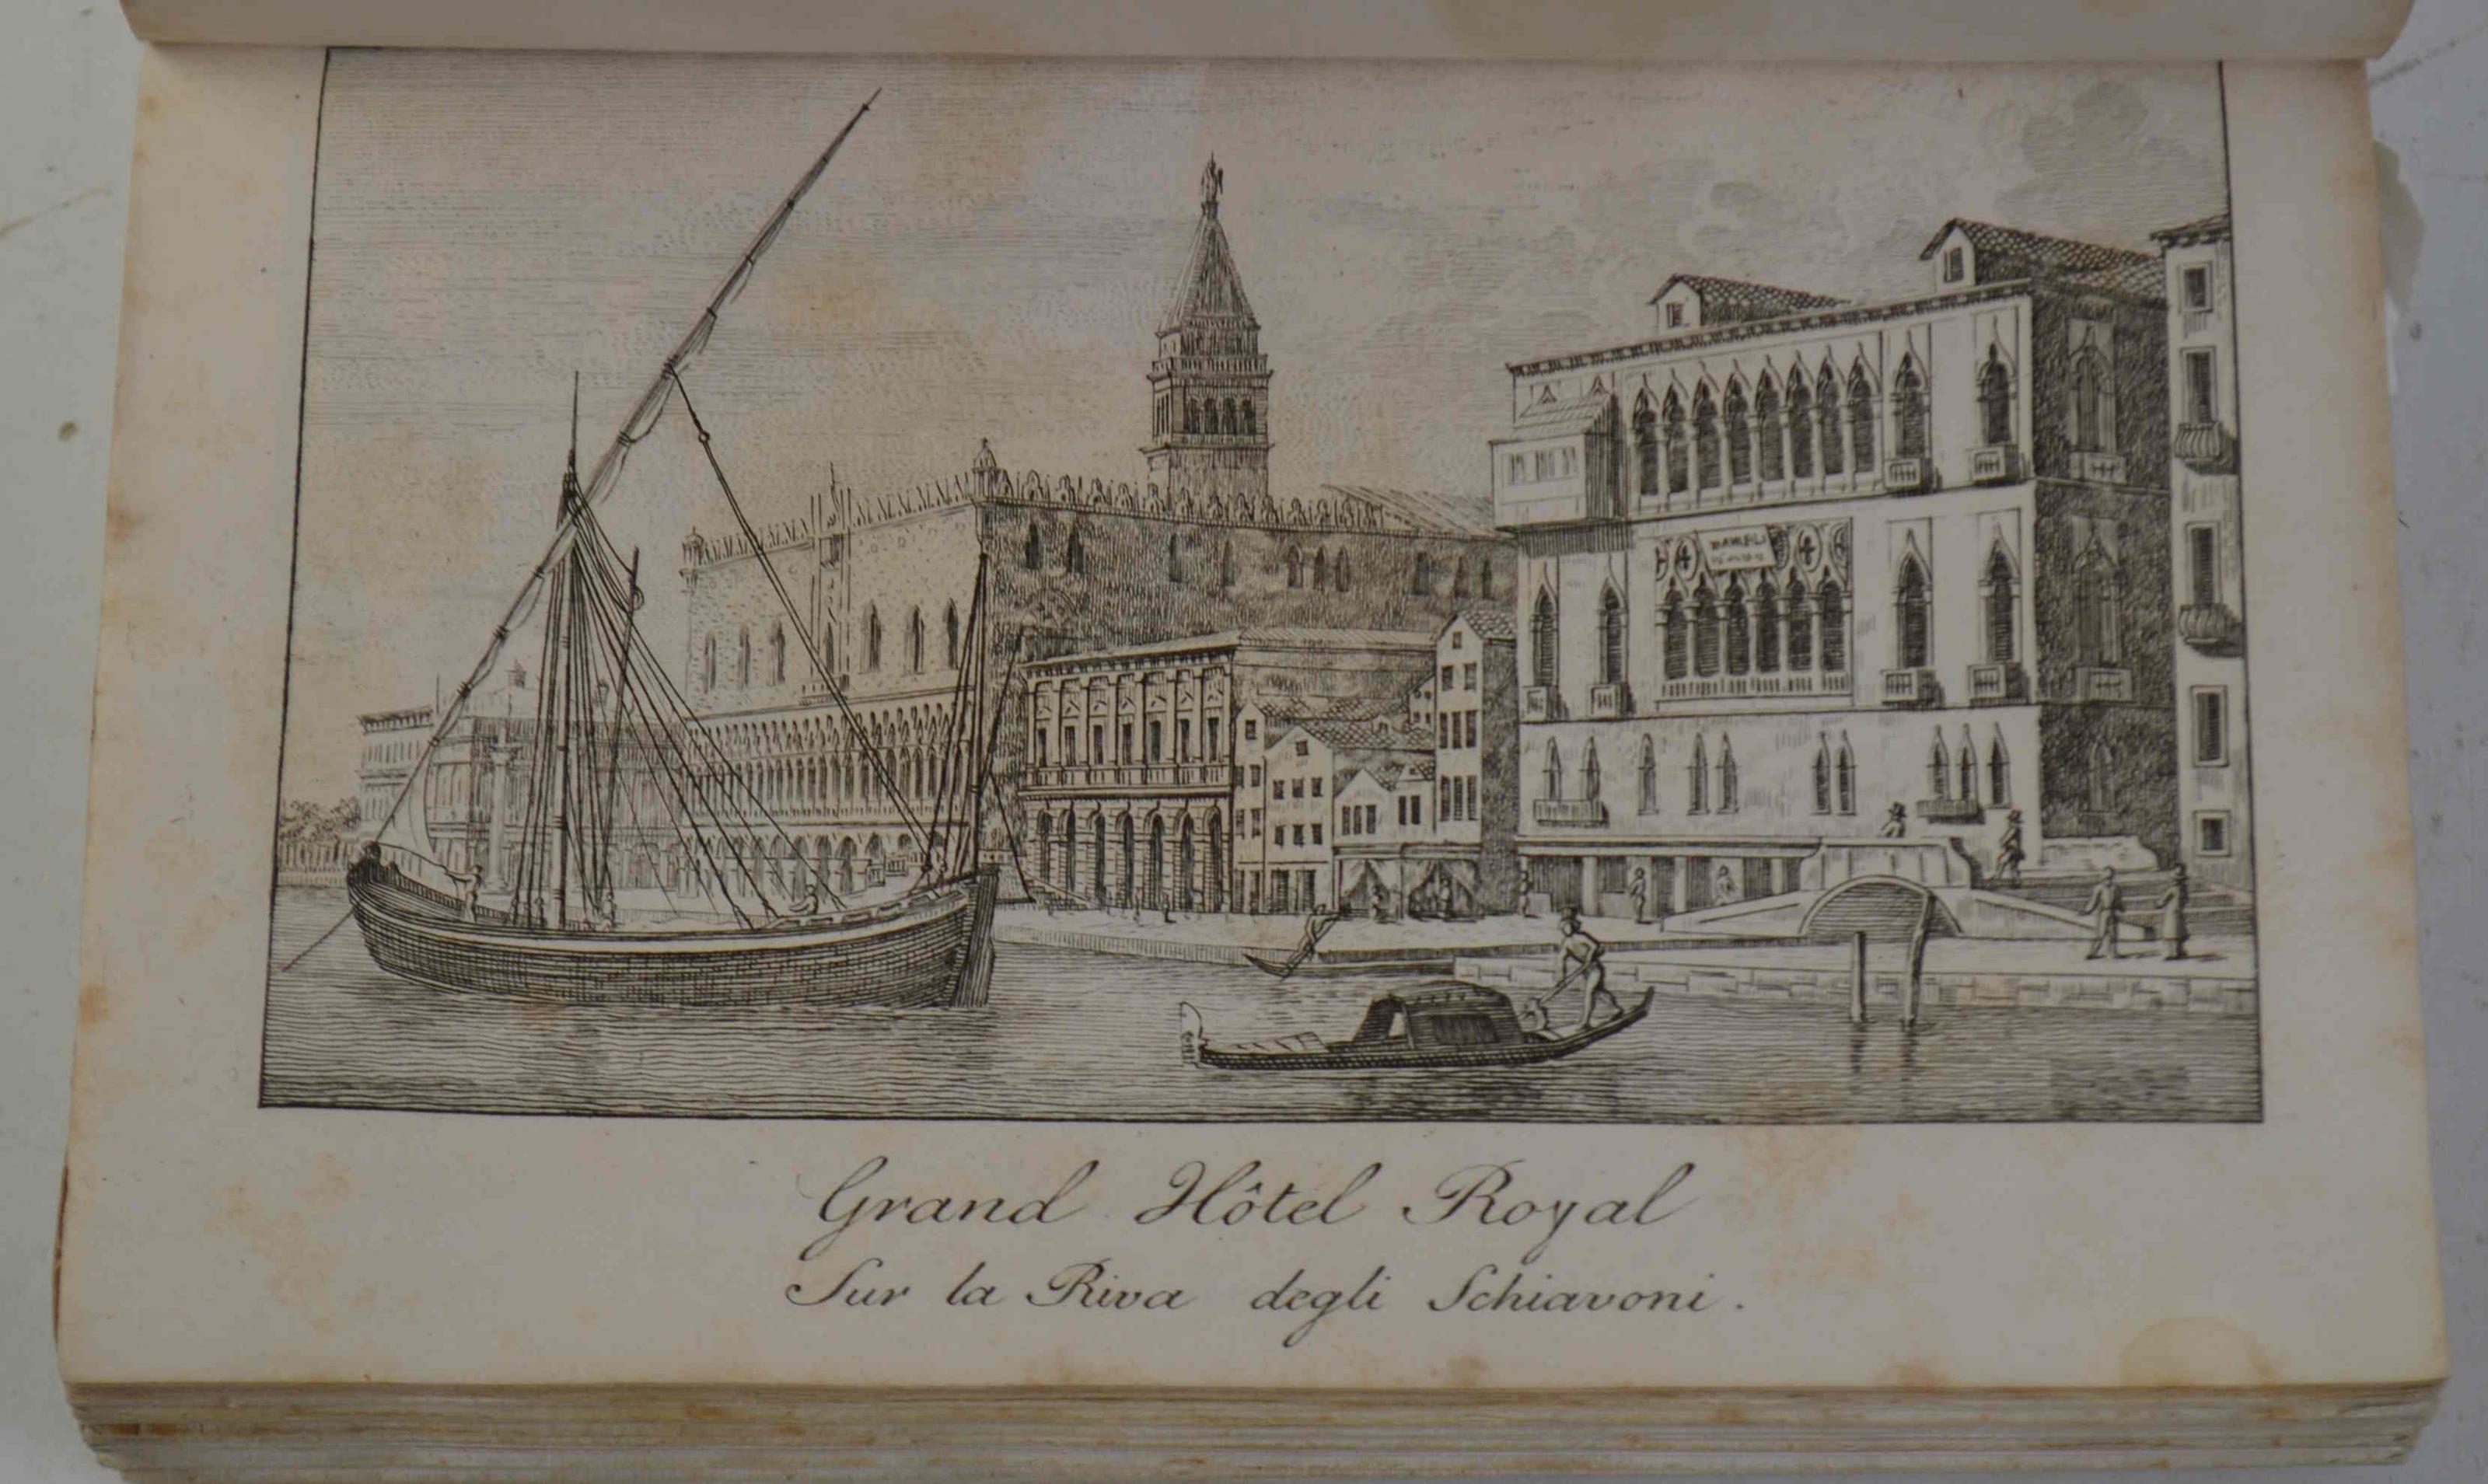 DANIELI
Grand Hôtel Royal
Sur la Riva degli Schiavoni.